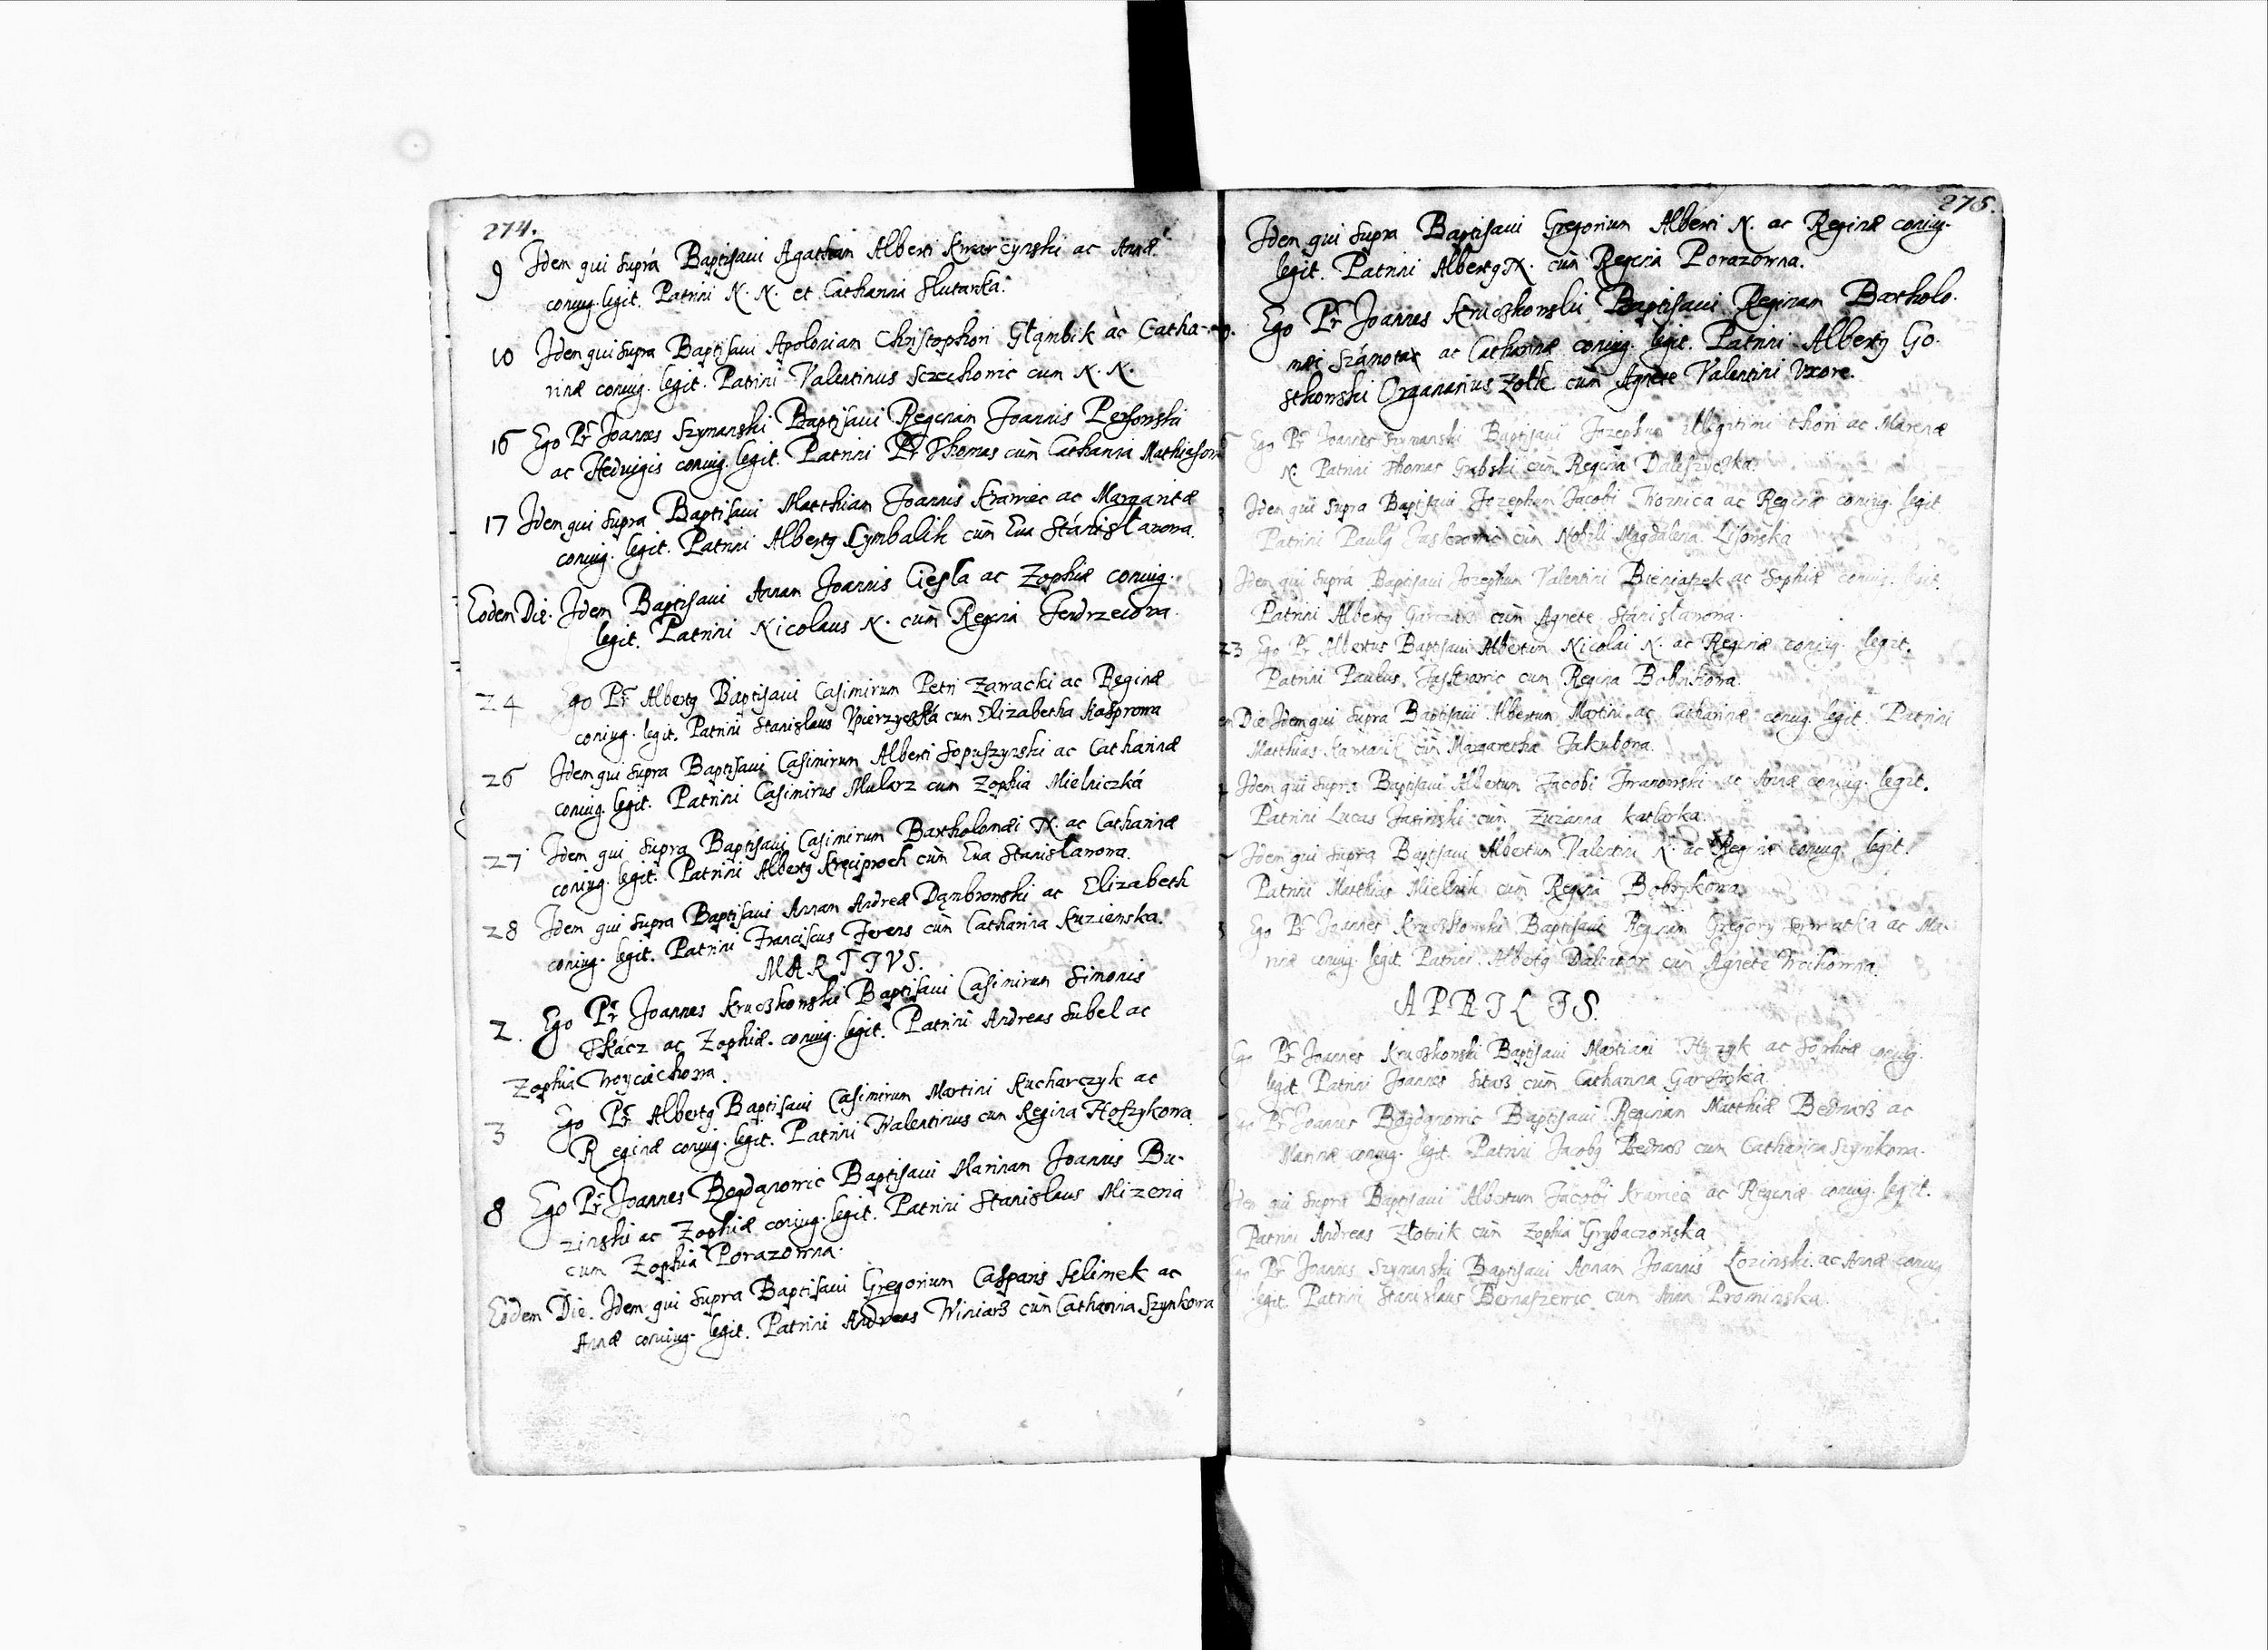 274.
9 Idem qui supra Baptisaui Agatham Alberti Kwarcynski ac Annæ
coniug. legit. Patrini N. N. et Catharina Slutarka.
10 Idem qui supra Baptisaui Apoloniam Christophori Głąmbik ac Catha-
rinæ coniug. legit. Patrini Valentinus Sczechowic cum N. N.
16 Ego Pr Joannes Szymanski Baptisaui Reginam Joannis Persowski
ac Hedvigis coniug. legit. Patrini Pr Thomas cum Catharina
17 Idem qui supra Baptisaui Matthiam Joannis Krawiec ac Margaritæ
coniug. legit. Patrini Alberty Cymbalik cum Eua Stanisławowa.
Eodem Die. Idem Baptisaui Annam Joannis Cięsla ac Zophiæ coniug.
legit. Patrini Nicolaus N. cum Regina Jendrzeiowa.
24 Ego Pr Alberty Baptisaui Casimirum Petri Zawacki ac Reginæ
coniug. legit. Patrini Stanislaus cum Elizabetha Kasprowa
26 Idem qui supra Baptisaui Casimirum Alberti Sopuszynski ac Catharinæ
coniug. legit. Patrini Casimirus Mularz cum Zophia Mielniczká
27 Idem qui supra Baptisaui Casimirum Bartholomæi N. ac Catharinæ
coniug. legit. Patrini Alberty Kręciproch cum Eua Stanisławowa.
28 Idem qui supra Baptisaui Annam Andreæ Dąmbrowski ac Elizabeth
coniug. legit. Patrini Franciscus Ferens cum Catharina Kuzienska.
MARTIVS.
2. Ego Pr Joannes Kruczkowski Baptisaui Casimirum Simonis
Tkacz ac Zophiæ. coniug. legit. Patrini Andreas Subel ac
Zophia Woyciechowa.
3 Ego Pr Alberty Baptisaui Casimirum Martini Kucharczyk ac
Reginæ coniug. legit. Patrini Walentinus cum Regina Hoszykowa
8 Ego Pr Joannes Bogdąnowic Baptisaui Marinam Joannis Bu-
zinski ac Zophiæ coniug. legit. Patrini Stanislaus Mizeria
cum Zophia Porazowna.
Eodem Die. Idem qui supra Baptisaui Gregorium Casparis Klimek ac
Annæ coniug. legit. Patrini Andreas Winiarz cum Catharina Szynkowa
275.
Idem qui supra Baptisaui Gregorium Alberti N. ac Reginæ coniug.
legit. Patrini Alberty N. cum Regina Porazowna.
Ego Pr Joannes Kruczkowski Baptisaui Reginam Bartholo-
mæi Számotac ac Catharinæ coniug. legit. Patrini Alberty Go-
Organarius cum Agnete Valentini Vxore.
Ego Pr Joannes Szymanski Baptisaui Jozephum Illegitimi thori ac Marenæ
N. Patrini Thomas Grabski cum Regina Daleszyczka.
Idem qui supra Baptisaui Jozephum Jacobi Woznica ac Reginæ coniug. legit.
Patrini Pauly Jaskrowic cum Nobili Magdalena Lisowska
Idem qui supra Baptisaui Jozephum Valentini Bieniaszek ac Sophiæ coniug. legit.
Patrini Alberty cum Agnete Stanisławowa.
23 Ego Pr Albertus Baptisaui Albertum Nicolai N. ac Reginæ coniug. legit.
Patrini Paulus Jaskrowic cum Regina
Die Idem qui supra Baptisaui Albertum Martini ac Catharinæ coniug. legit. Patrini
Matthias cum Margaretha Jakubowa.
Idem qui supra Baptisaui Albertum Jacobi Jwanowski ac Annæ coniug. legit.
Patrini Lucas Jasinski cum Zuzanna Katlarka.
Idem qui supra Baptisaui Albertum Valentini N. ac Reginæ coniug. legit.
Patrini Matthias Mielnik cum Regina Bobrykowa
Ego Pr Joannes Kruczkowski Baptisaui Reginam Gregory Serwatka ac Ma-
rinæ coniug. legit. Patrini. Alberty cum Agnete
APRILIS.
Ego Pr Joannes Kruczkowski Baptisaui Martiani ac Sophiæ coniug.
legit. Patrini Joannes Sitarz cum Catharina
Ego Pr Joannes Bogdąnowic Baptisaui Reginam Matthiæ Bednarz ac
Marinæ coniug. legit. Patrini Jacoby Bednarz cum Catharina Szynkowa.
Idem qui supra Baptisaui Albertum Jacobi Krawiec ac Reginæ coniug. legit.
Patrini Andreas Złotnik cum Zophia Grybaczowska
Ego Pr Joannes Szymanski Baptisaui Annam Joannis Łozinski ac Annæ coniug
legit. Patrini Stanislaus Bernaszewic cum Anna Prominska.